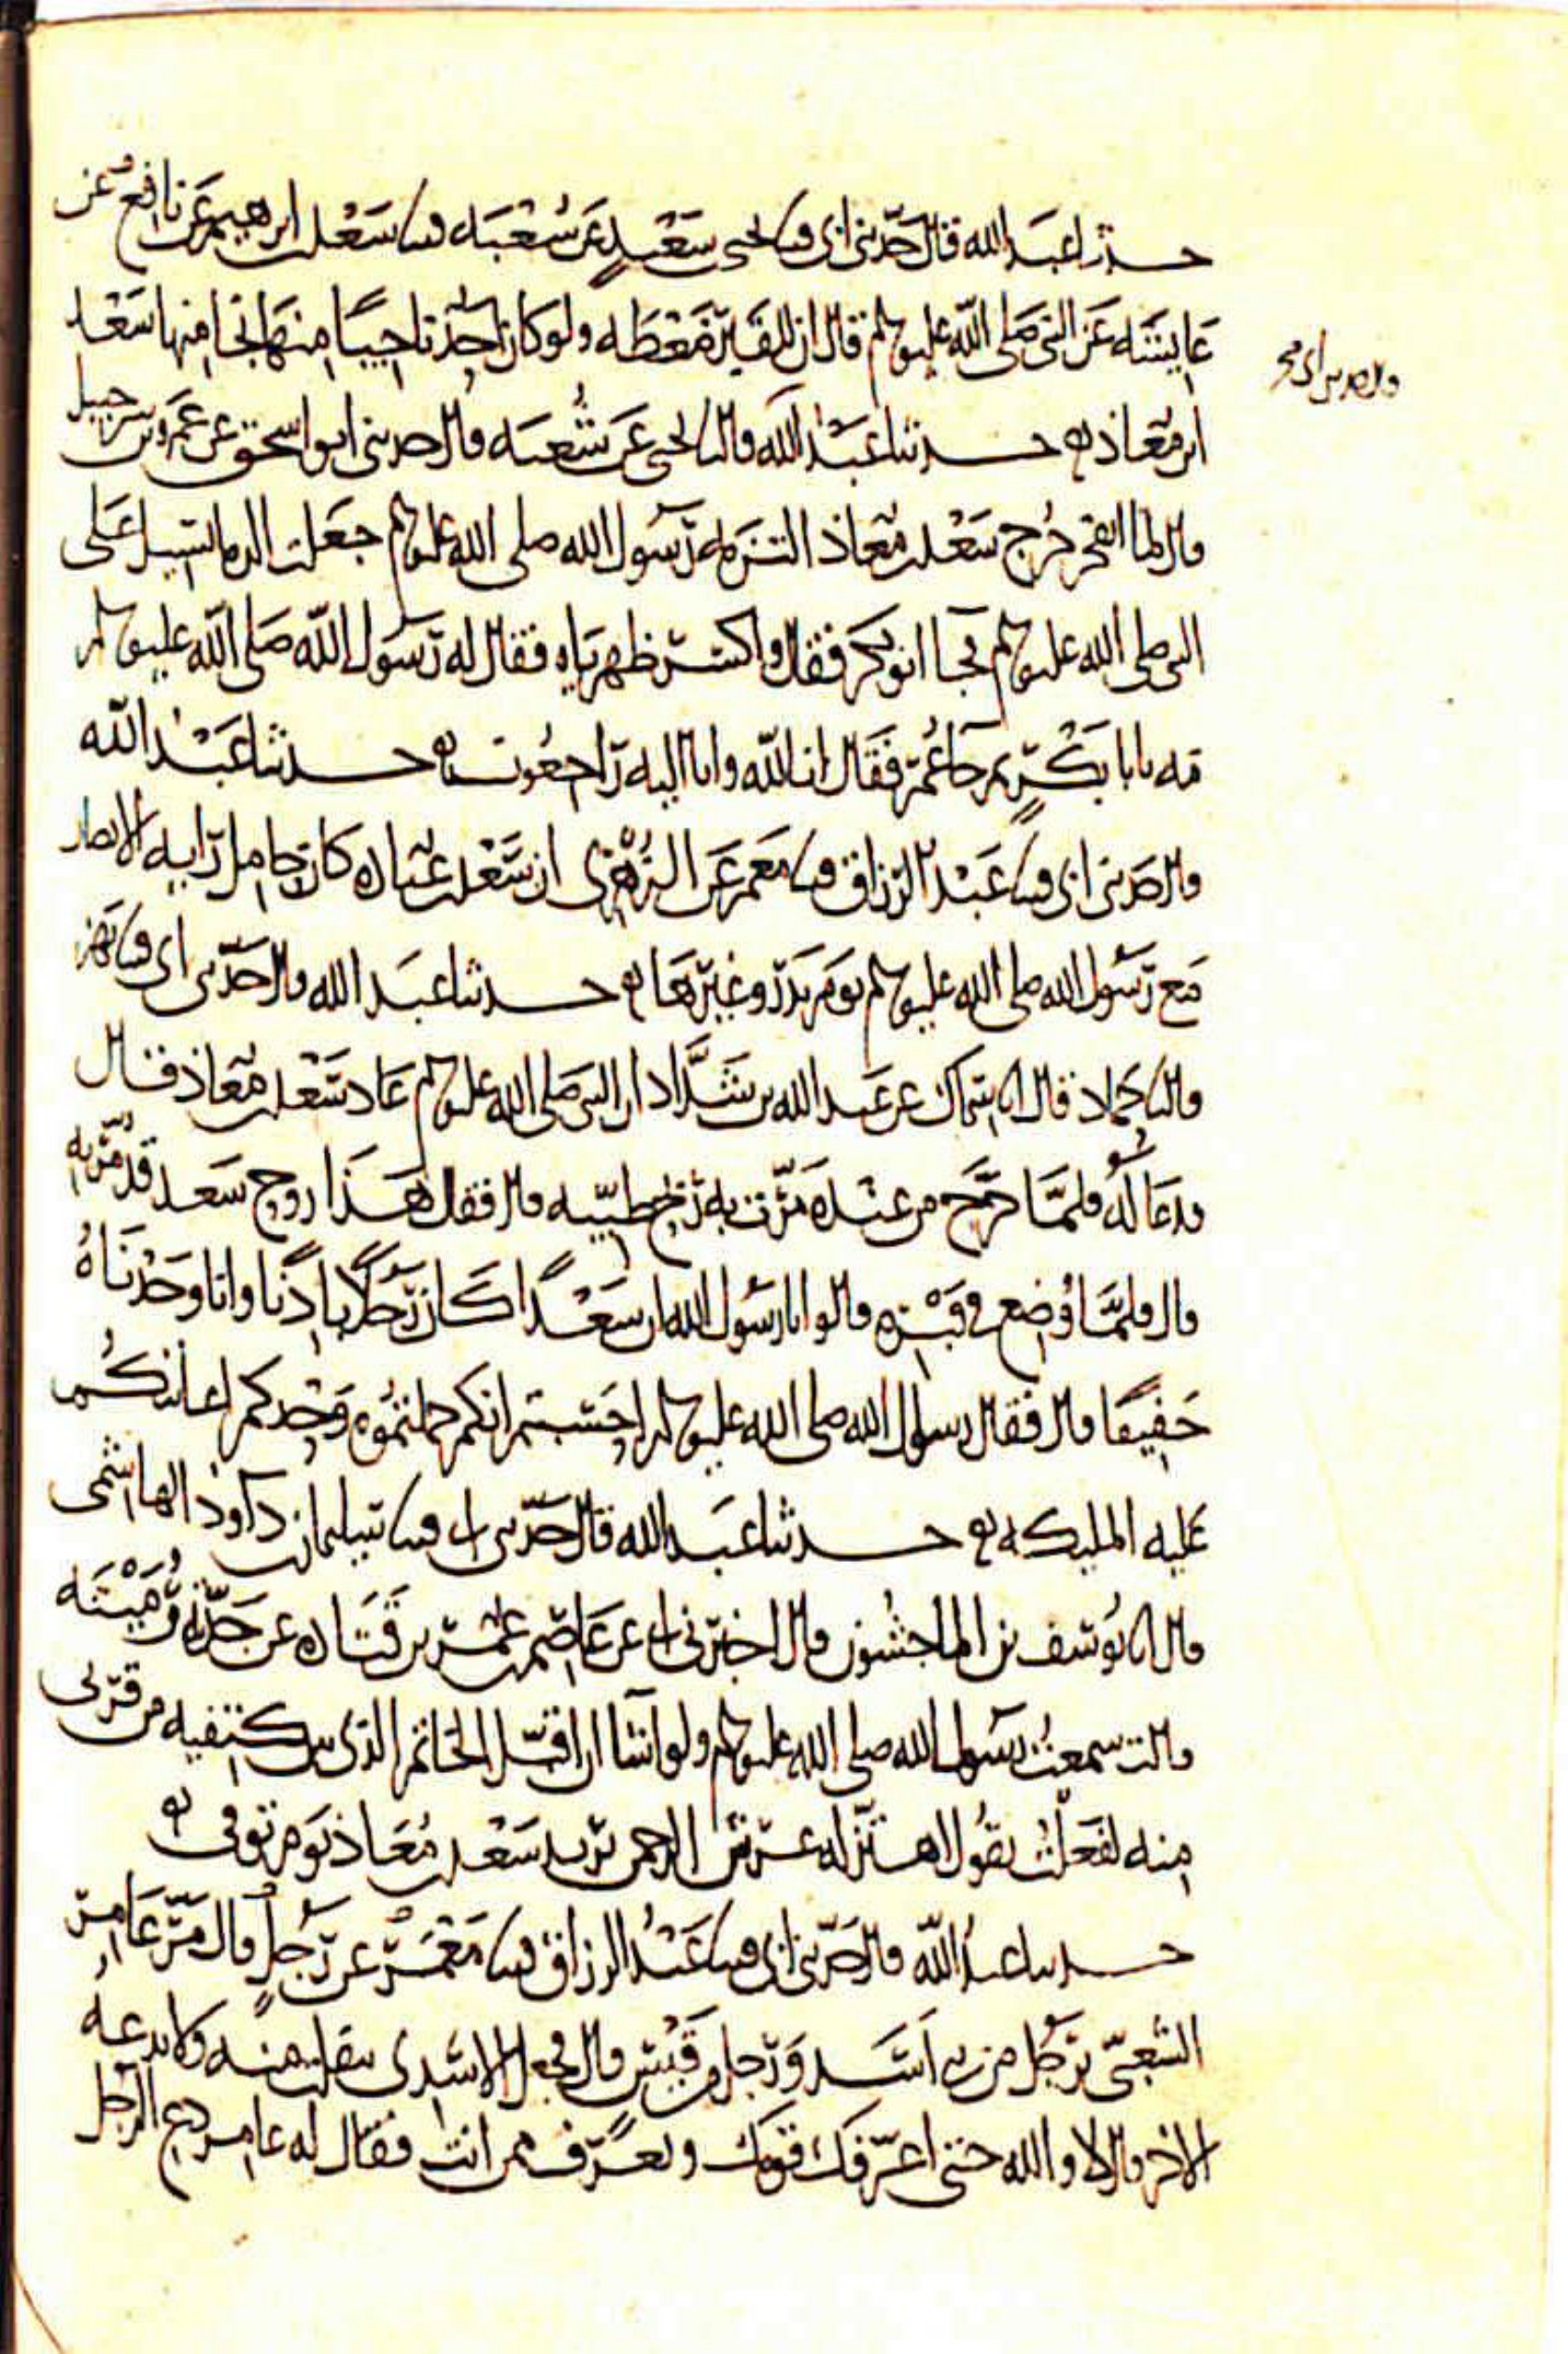 حدثنا عبد الله قال حدثني ابي قثنا يحيى بن سعيد عن شعبه قثنا سعد بن ابرهيم عن نافع عن
عايشه عن النبي صلى الله عليه وسلم قال ان للقبر ضغطه ولو كان احد ناجيا منها نجا منها سعد
ابن معاذ حدثنا عبد الله قال نا يحيى عن شعبه قال حدثني ابو اسحق عن عمرو بن شرحبيل
قال لما انفجر جرح سعد بن معاذ التزمه رسول الله صلى الله عليه وسلم جعلت الدما تسيل على
النبي صلى الله عليه وسلم فجا ابو بكر فقال واكسر ظهرياه فقال له رسول الله صلى الله عليه وسلم
مه يابا بكر ثم جا عمر فقال انا لله وانا اليه راجعون حدثنا عبد الله
قال حدثني ابي قثنا عبد الرزاق قثنا معمر عن الزهري ان سعد بن عباده كان حامل رايه الانصار
مع رسول الله صلى الله عليه وسلم يوم بدر وغيرها حدثنا عبد الله قال حدثني ابي قثنا بهز
قال نا حماد قال انا سماك عن عبد الله بن شداد ان النبي صلى الله عليه وسلم عاد سعد بن معاذ قال
فدعا له فلما خرج من عنده مرت به ريح طيبه قال فقال هذا روح سعد قد مر به
قال فلما وضع في قبره قالوا يا رسول الله ان سعدا كان رجلا بادنا وانا وجدناه
خفيفا قال فقال رسول الله صلى الله عليه وسلم احسبتم انكم حملتموه وحدكم اعانتكم
عليه المليكه حدثنا عبد الله قال حدثني ابي قثنا سليمان بن داود الهاشمي
قال انا يوسف بن الماجشون قال اخبرني ابي عن عاصم بن عمر بن قتاده عن جدته رميثه
قالت سمعت رسول الله صلى الله عليه وسلم ولو اشا ان اقبل الخاتم الذي بين كتفيه من قربي
منه لفعلت يقول اهتز له عرش الرحمن يريد سعد بن معاذ يوم توفي
حدثنا عبد الله قال حدثني ابي قثنا عبد الرزاق قثنا معمر عن رجل قال مر عامر
الشعبي برجل من بني اسد ورجل من قيس قال فجعل الاسدي يتفلت منه ولا يدعه
الاخر قال لا والله حتى اعرفك قومك وتعرف ممن انت فقال له عامر دع الرجل